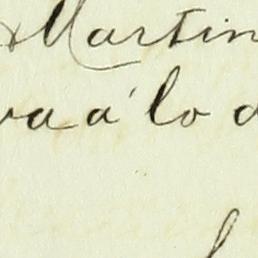 Martin
va á lo